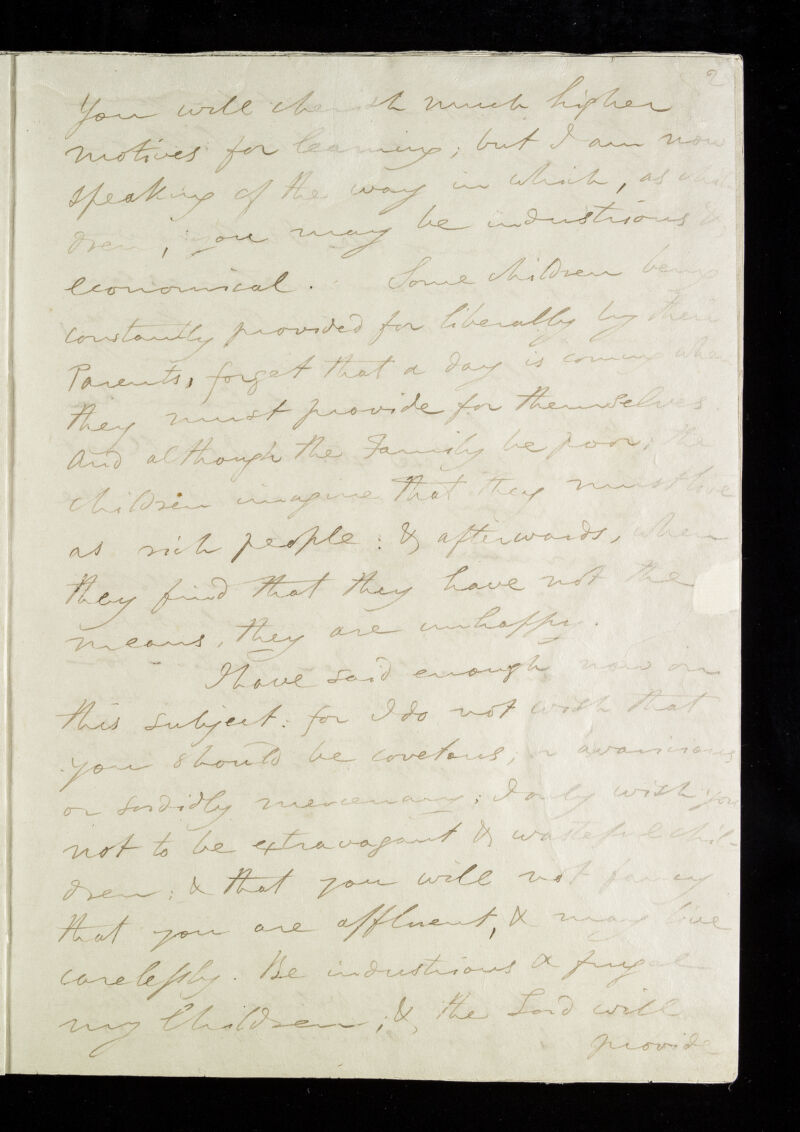 2
You will cherish much higher
motives for learning; but I am now
speaking of the way in which, as chil
dren, you may be industrious &
economical. Some children being
constantly provided for liberally by their
Parents, forget that a day is coming when
they must provide for themselves.
And although the Family be poor, the
children imagine that they must live
as rich people: & afterwards, when
they find that they have not the
means, they are unhappy.
I have said enough now on
this subject: for I do not wish that
you should be covetous, or avaricious
or sordidly mercenary; I only wish you
not to be extravagant & wasteful chil-
dren; & that you will not fancy
that you are affluent, & may live
carelessly. Be industrious & frugal
my Children; & the Lord will
provide